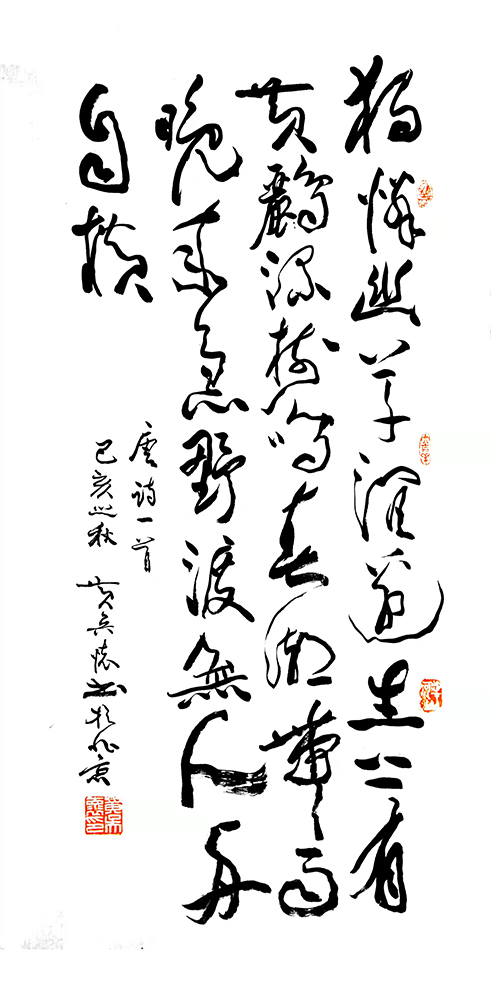 獨憐幽草澗邊生上有
黄鸝深樹鳴春潮帶雨
晚來急野渡無人舟
自横
唐詩一首
己亥之秋 黄懷書於北京